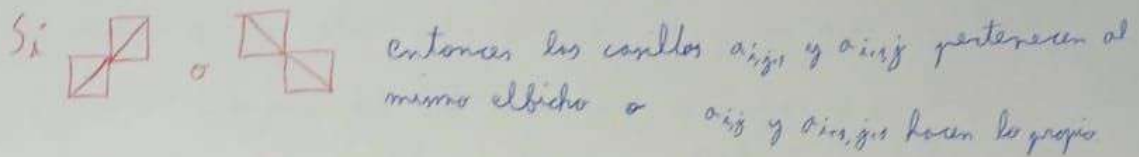 Si o entonces las casillas a_{i,j+1} y a_{i+1,j} pertenecen al
mismo elbicho o a_{i,j} y a_{i+1,j+1} hacen lo propio